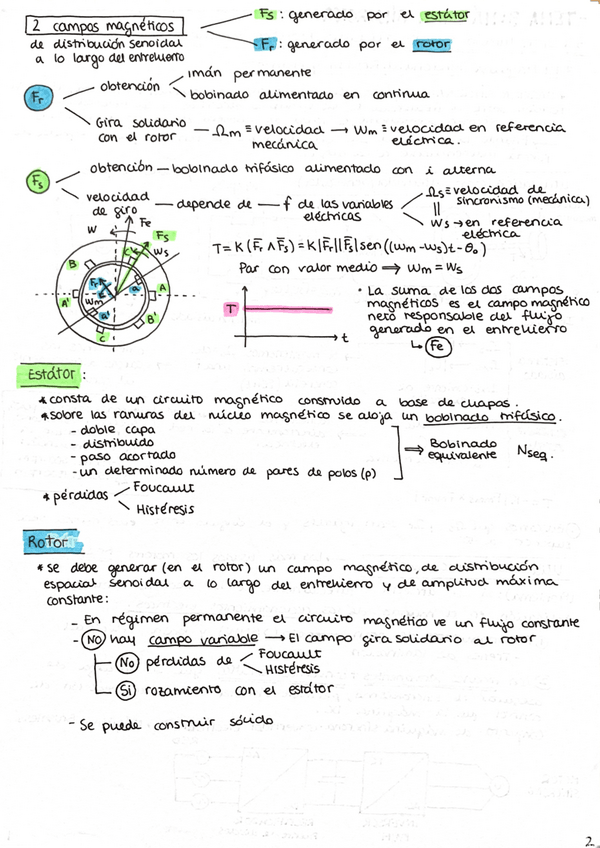 2 campos magnéticos
de distribución senoidal
a lo largo del entrehierro
Fs: generado por el estátor
Fr: generado por el rotor
Fr
obtención
imán permanente
bobinado alimentado en continua
Gira solidario
con el rotor
Ωm ≡ velocidad
mecánica
→ Wm ≡ velocidad en referencia
eléctrica.
Fs
obtención — bobinado trifásico alimentado con i alterna
velocidad
de giro
depende de — f de las variables
eléctricas
Ωs ≡ velocidad de
sincronismo (mecánica)
||
Ws → en referencia
eléctrica
W
Fe
Fs
Ws
B
C'
Fr
A'
Wm
a
A
a'
B'
C
T = K (F̄r ∧ F̄s) = K |F̄r| |F̄s| sen ((wm - ws)t - θo)
Par con valor medio ⇒ Wm = Ws
T
t
• La suma de los dos campos
magnéticos es el campo magnético
neto responsable del flujo
generado en el entrehierro
↳ Fe
Estátor:
* consta de un circuito magnético construido a base de chapas.
* sobre las ranuras del núcleo magnético se aloja un bobinado trifásico.
- doble capa
- distribuido
- paso acortado
- un determinado número de pares de polos (p)
⇒ Bobinado
equivalente
Nseq.
* pérdidas
Foucault
Histéresis
Rotor
* se debe generar (en el rotor) un campo magnético, de distribución
espacial senoidal a lo largo del entrehierro y de amplitud máxima
constante:
- En régimen permanente el circuito magnético ve un flujo constante
- NO hay campo variable → El campo gira solidario al rotor
No pérdidas de
Foucault
Histéresis
Sí rozamiento con el estátor
- Se puede construir sólido
2